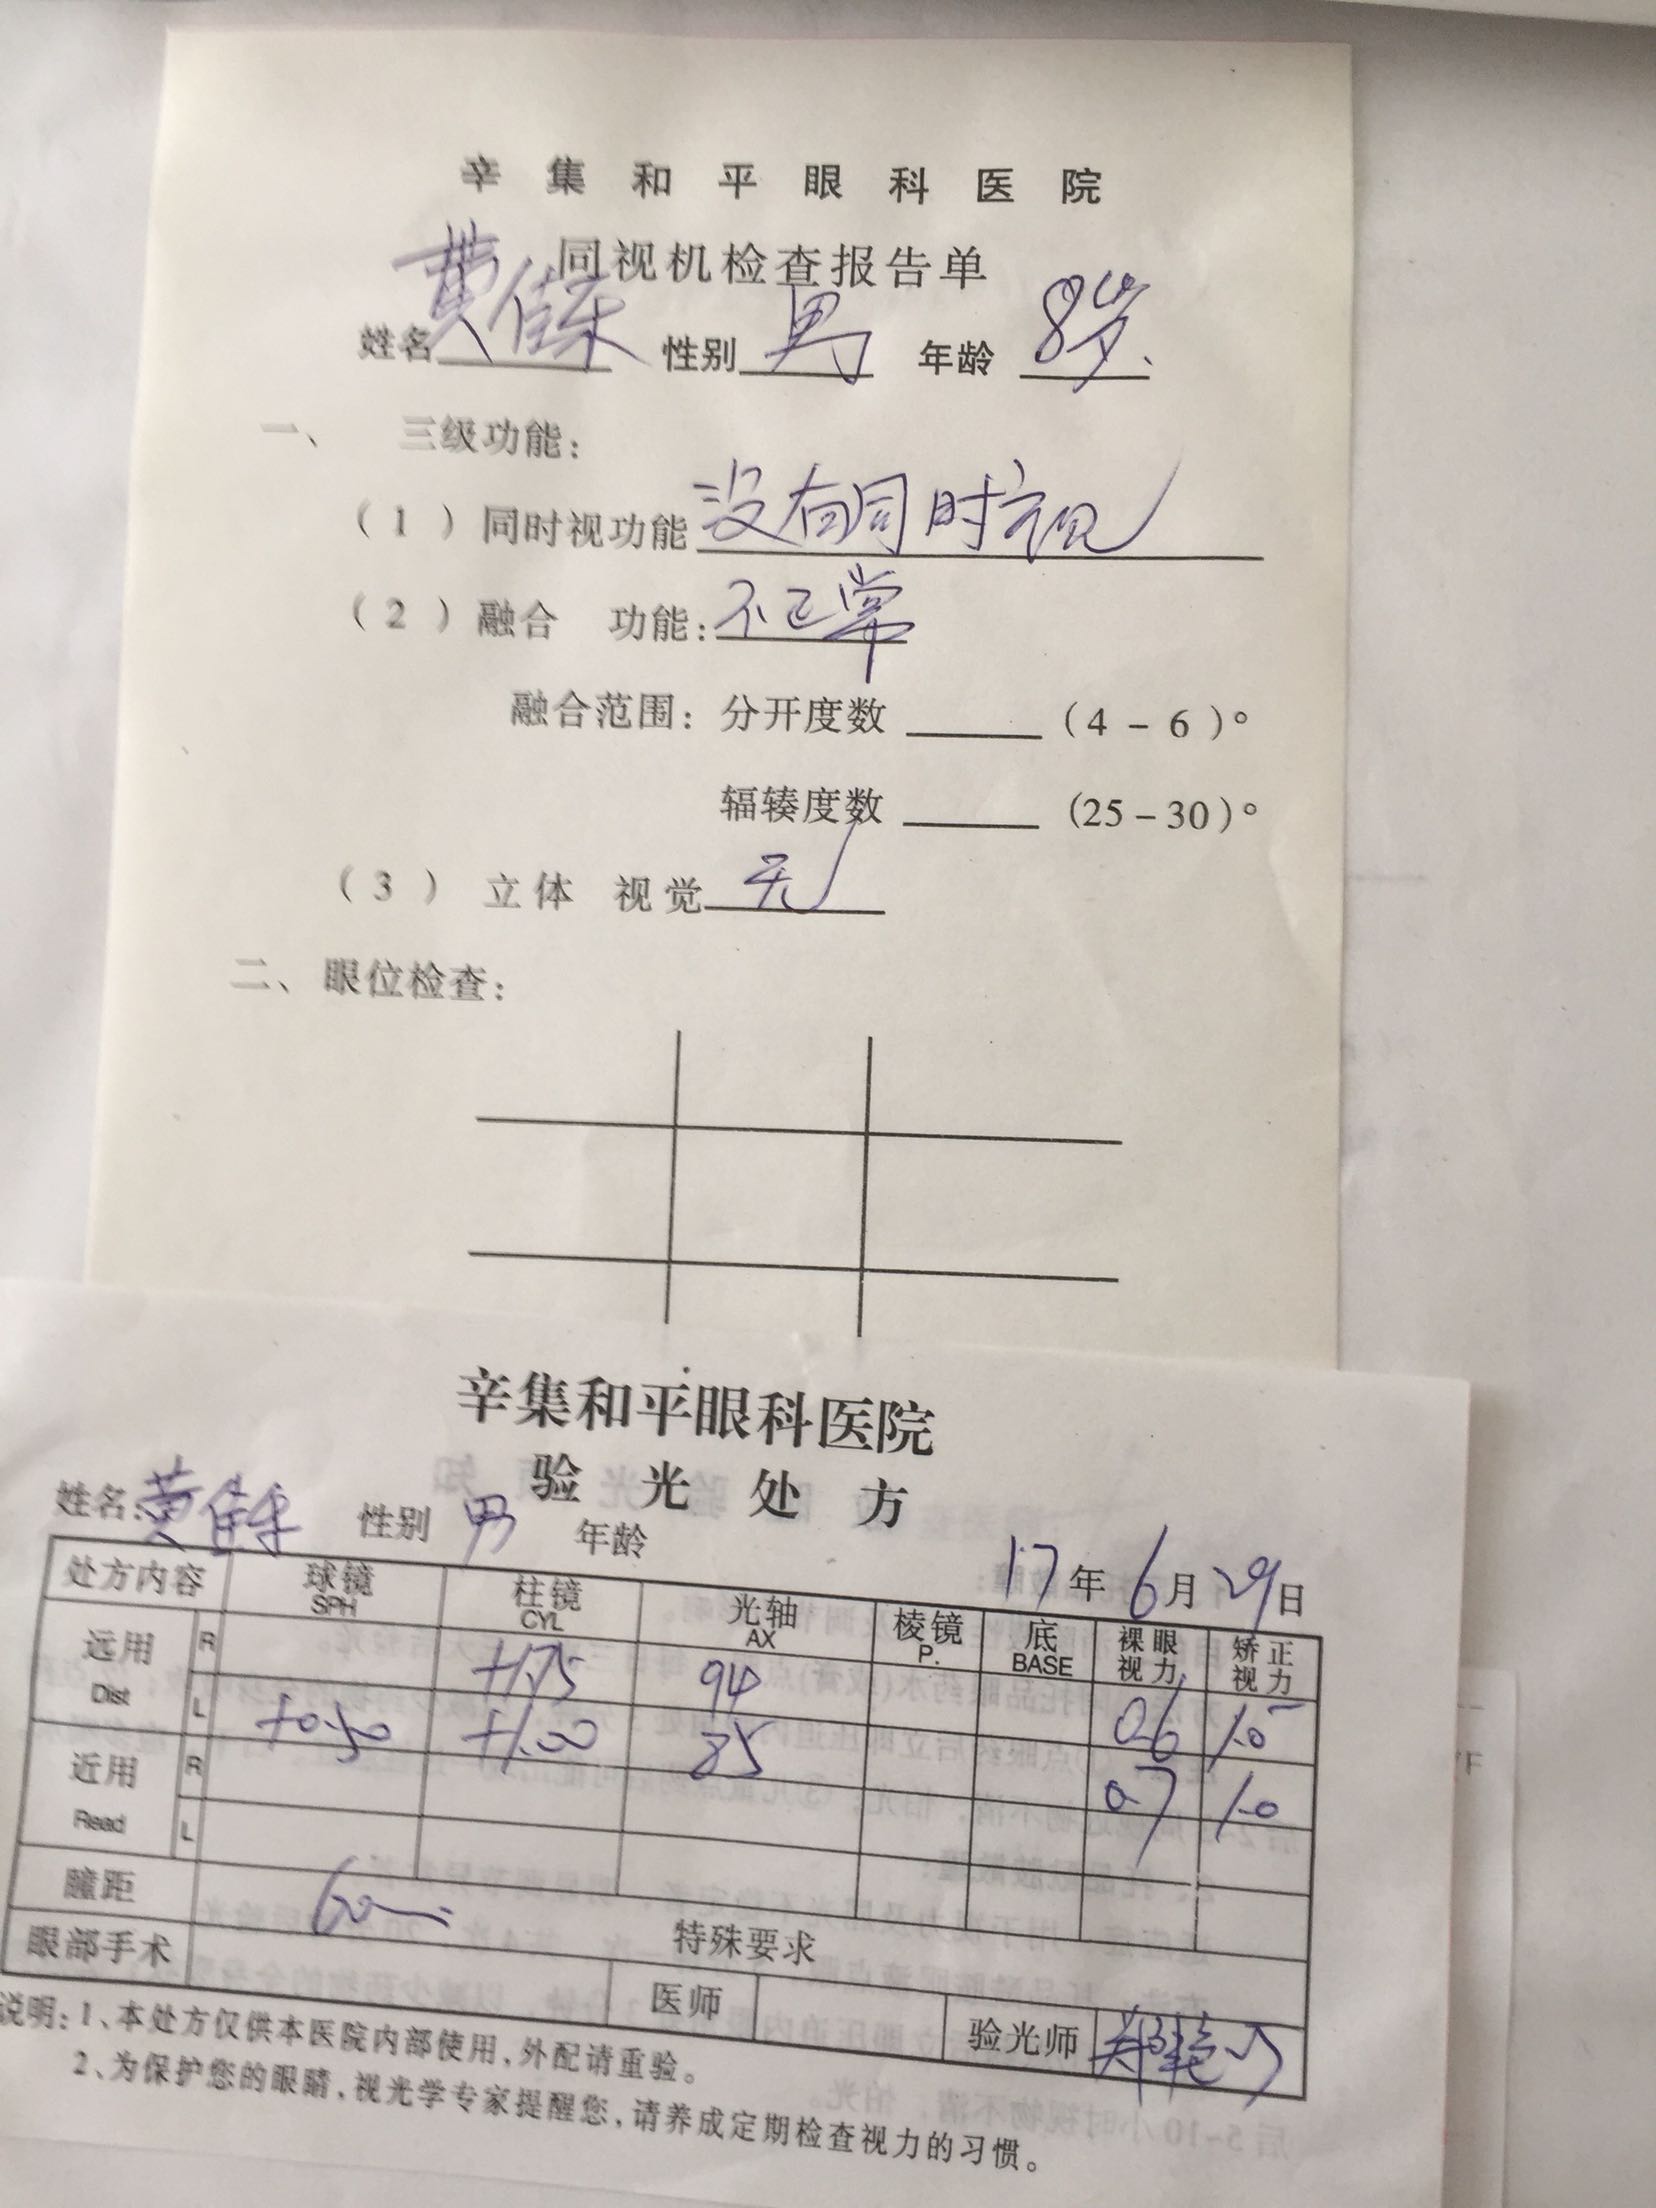 辛集和平眼科医院
同视机检查报告单
姓名 性别 男 年龄 8岁
一、 三级功能：
（1）同时视功能 没有同时视
（2）融合 功能：不正常
融合范围：分开度数 （4－6）°
辐辏度数 （25－30）°
（3）立体 视觉 无
二、眼位检查：
辛集和平眼科医院
验光处方
姓名： 性别 男 年龄
17年6月29日
处方内容 球镜 SPH 柱镜 CYL 光轴 AX 棱镜 P. 底 BASE 裸眼视力 矫正视力
远用 Dist R +1.75 94 0.6 1.0-
L +0.50 +1.00 85 0.7 1.0
近用 Read R
L
瞳距 60
眼部手术 特殊要求
医师 验光师
说明：1、本处方仅供本医院内部使用，外配请重验。
2、为保护您的眼睛，视光学专家提醒您，请养成定期检查视力的习惯。